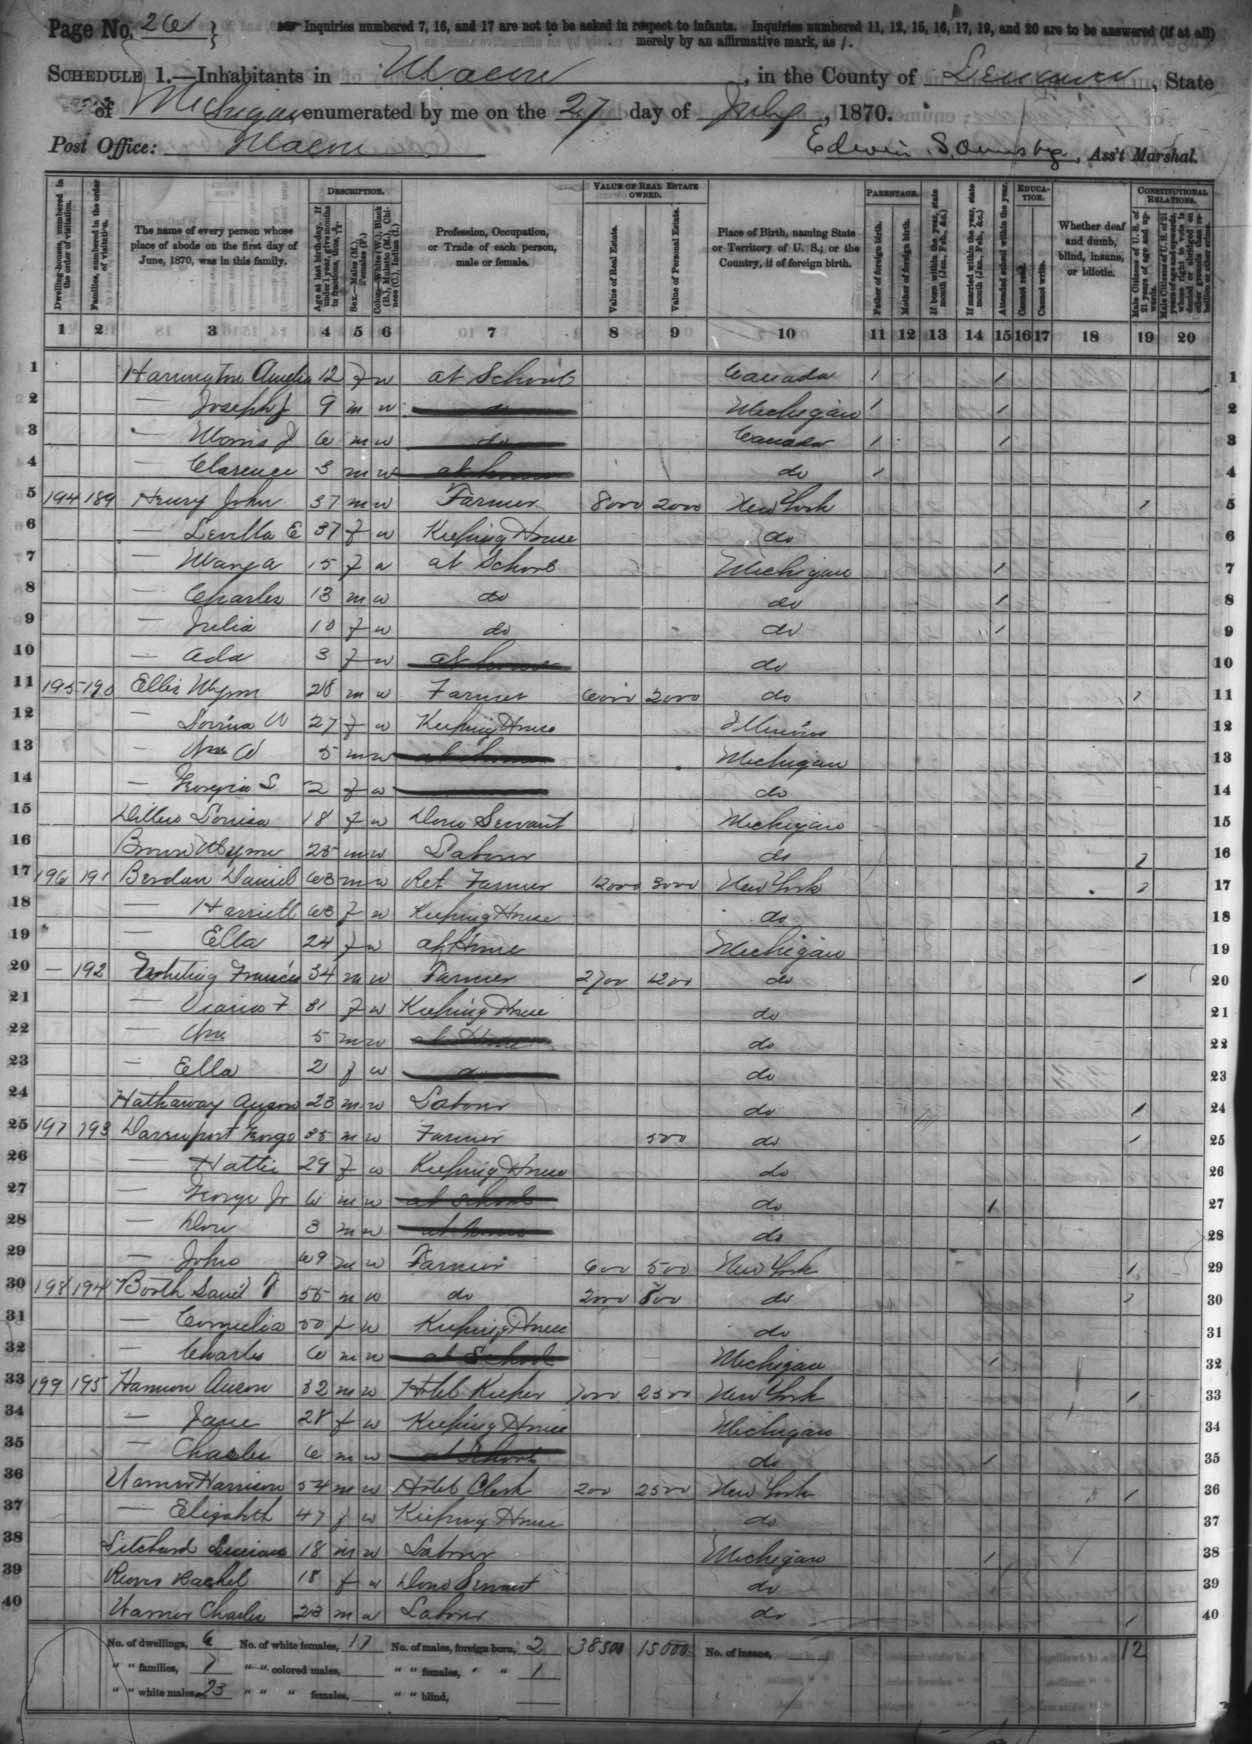 Page No. 26
Inquiries numbered 7, 16, and 17 are not to be asked in respect to infants. Inquiries numbered 11, 12, 15, 16, 17, 19, and 20 are to be answered (if at all)
merely by an affirmative mark, as /.
SCHEDULE 1.—Inhabitants in Macon, in the County of Lenawee, State
of Michigan enumerated by me on the 27 day of July, 1870.
Post Office: Macon
Edwin, Ass't Marshal.
Dwelling-houses, numbered in the order of visitation.
Families, numbered in the order of visitation.
The name of every person whose place of abode on the first day of June, 1870, was in this family.
DESCRIPTION.
Age at last birth-day. If under 1 year, give months in fractions, thus, 3/12
Sex.—Males (M.), Females (F.)
Color.—White (W.), Black (B.), Mulatto (M.), Chinese (C.), Indian (I.)
Profession, Occupation, or Trade of each person, male or female.
VALUE OF REAL ESTATE OWNED.
Value of Real Estate.
Value of Personal Estate.
Place of Birth, naming State or Territory of U. S.; or the Country, if of foreign birth.
PARENTAGE.
Father of foreign birth.
Mother of foreign birth.
If born within the year, state month (Jan., Feb., &c.)
If married within the year, state month (Jan., Feb., &c.)
Attended school within the year.
EDUCATION.
Cannot read.
Cannot write.
Whether deaf and dumb, blind, insane, or idiotic.
CONSTITUTIONAL RELATIONS.
Male Citizens of U. S. of 21 years of age and upwards.
1 2 3 4 5 6 7 8 9 10 11 12 13 14 15 16 17 18 19 20
1 Harrington Amelia 12 f w at School Canada / / 1
2 — Joseph J 9 m w do Michigan / / 2
3 — Morris J 6 m w do Canada / / 3
4 — Clarence 3 m w at home do / 4
5 194 189 Henry John 37 m w Farmer 8000 2000 New York / 5
6 — Levilla E 37 f w Keeping House do 6
7 — Mary A 15 f w at School Michigan / 7
8 — Charles 13 m w do do / 8
9 — Julia 10 f w do do / 9
10 — Ada 3 f w at home do 10
11 195 190 Ellis Wynn 28 m w Farmer 6000 2000 do / 11
12 — 27 f w Keeping House Illinois 12
13 — Wm W 5 m w at home Michigan 13
14 — Georgia S 2 f w do 14
15 Louisa 18 f w Dom Servant Michigan 15
16 Brown 25 m w Laborer do / 16
17 196 191 Berdan Daniel 63 m w Ret Farmer 12000 3000 New York / 17
18 — Harriett 63 f w Keeping House do 18
19 — Ella 24 f w at Home Michigan 19
20 — 192 Whiting Francis 34 m w Farmer 2700 1200 do / 20
21 — 31 f w Keeping House do 21
22 — Wm 5 m w at Home do 22
23 — Ella 2 f w do do 23
24 Hathaway Anson 23 m w Laborer do / 24
25 197 193 Davenport George 35 m w Farmer 500 do / 25
26 — Hattie 29 f w Keeping House do 26
27 — George Jr 6 m w at School do / 27
28 — Don 3 m w at home do 28
29 — John 69 m w Farmer 600 500 New York / 29
30 198 194 Booth David 55 m w do 2000 800 do / 30
31 — Cornelia 50 f w Keeping House do 31
32 — Charles 6 m w at School Michigan / 32
33 199 195 Hammon Anson 32 m w Hotel Keeper 7000 2500 New York / 33
34 — Jane 28 f w Keeping House Michigan 34
35 — Charles 6 m w at School do / 35
36 Warner Harrison 54 m w Hotel Clerk 200 2500 New York / 36
37 — Elizabeth 47 f w Keeping House do 37
38 18 m w Laborer Michigan / 38
39 Rachel 18 f w Dom Servant do 39
40 Warner Charlie 23 m w Laborer do / 40
No. of dwellings, 6 No. of white females, 17 No. of males, foreign born, 2 38500 15000 No. of insane, 12
" " families, 7 " " colored males, " " females, " " 1
" " white males, 23 " " " females, " " blind,